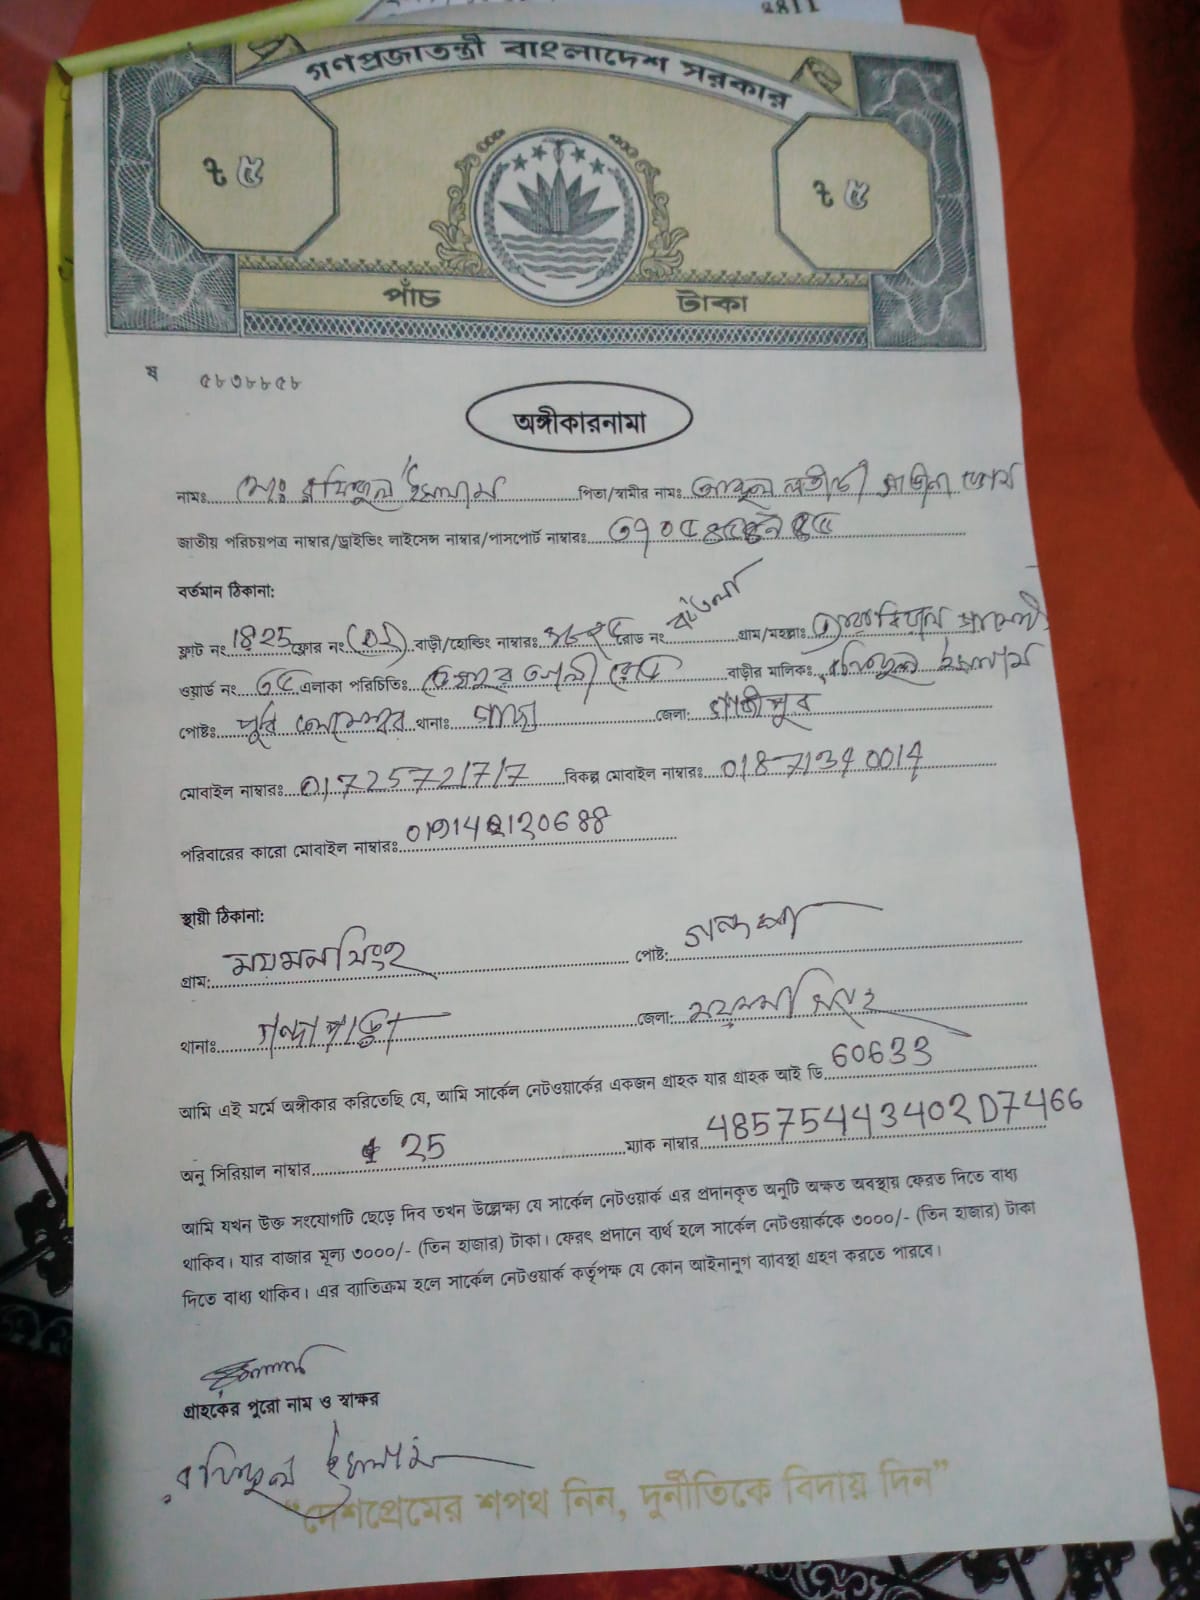 2811
গণপ্রজাতন্ত্রী বাংলাদেশ সরকার
৳ ৫ ৳ ৫
পাঁচ টাকা
ষ ৫৮৩৮৮৫৮
অঙ্গীকারনামা
নামঃ মোঃ রফিকুল ইসলাম পিতা/স্বামীর নামঃ আব্দুল
জাতীয় পরিচয়পত্র নাম্বার/ড্রাইভিং লাইসেন্স নাম্বার/পাসপোর্ট নাম্বারঃ
বর্তমান ঠিকানা:
ফ্লাট নং 1825 ফ্লোর নং বাড়ী/হোল্ডিং নাম্বারঃ রোড নং গ্রাম/মহল্লাঃ
ওয়ার্ড নং ৩৫ এলাকা পরিচিতিঃ রোড বাড়ীর মালিকঃ রফিকুল ইসলাম
পোষ্টঃ থানাঃ গাছা জেলা: গাজীপুর
মোবাইল নাম্বারঃ 01725721717 বিকল্প মোবাইল নাম্বারঃ 01871340014
পরিবারের কারো মোবাইল নাম্বারঃ
স্থায়ী ঠিকানা:
গ্রাম: ময়মনসিংহ পোষ্ট:
থানাঃ জেলা: ময়মনসিংহ
আমি এই মর্মে অঙ্গীকার করিতেছি যে, আমি সার্কেল নেটওয়ার্কের একজন গ্রাহক যার গ্রাহক আই ডি 60633
অনু সিরিয়াল নাম্বার 25 ম্যাক নাম্বার 48575443402D7466
আমি যখন উক্ত সংযোগটি ছেড়ে দিব তখন উল্লেক্ষ্য যে সার্কেল নেটওয়ার্ক এর প্রদানকৃত অনুটি অক্ষত অবস্থায় ফেরত দিতে বাধ্য
থাকিব। যার বাজার মূল্য ৩০০০/- (তিন হাজার) টাকা। ফেরৎ প্রদানে ব্যর্থ হলে সার্কেল নেটওয়ার্ককে ৩০০০/- (তিন হাজার) টাকা
দিতে বাধ্য থাকিব। এর ব্যাতিক্রম হলে সার্কেল নেটওয়ার্ক কর্তৃপক্ষ যে কোন আইনানুগ ব্যাবস্থা গ্রহণ করতে পারবে।
গ্রাহকের পুরো নাম ও স্বাক্ষর
রফিকুল ইসলাম
“দেশপ্রেমের শপথ নিন, দুর্নীতিকে বিদায় দিন”